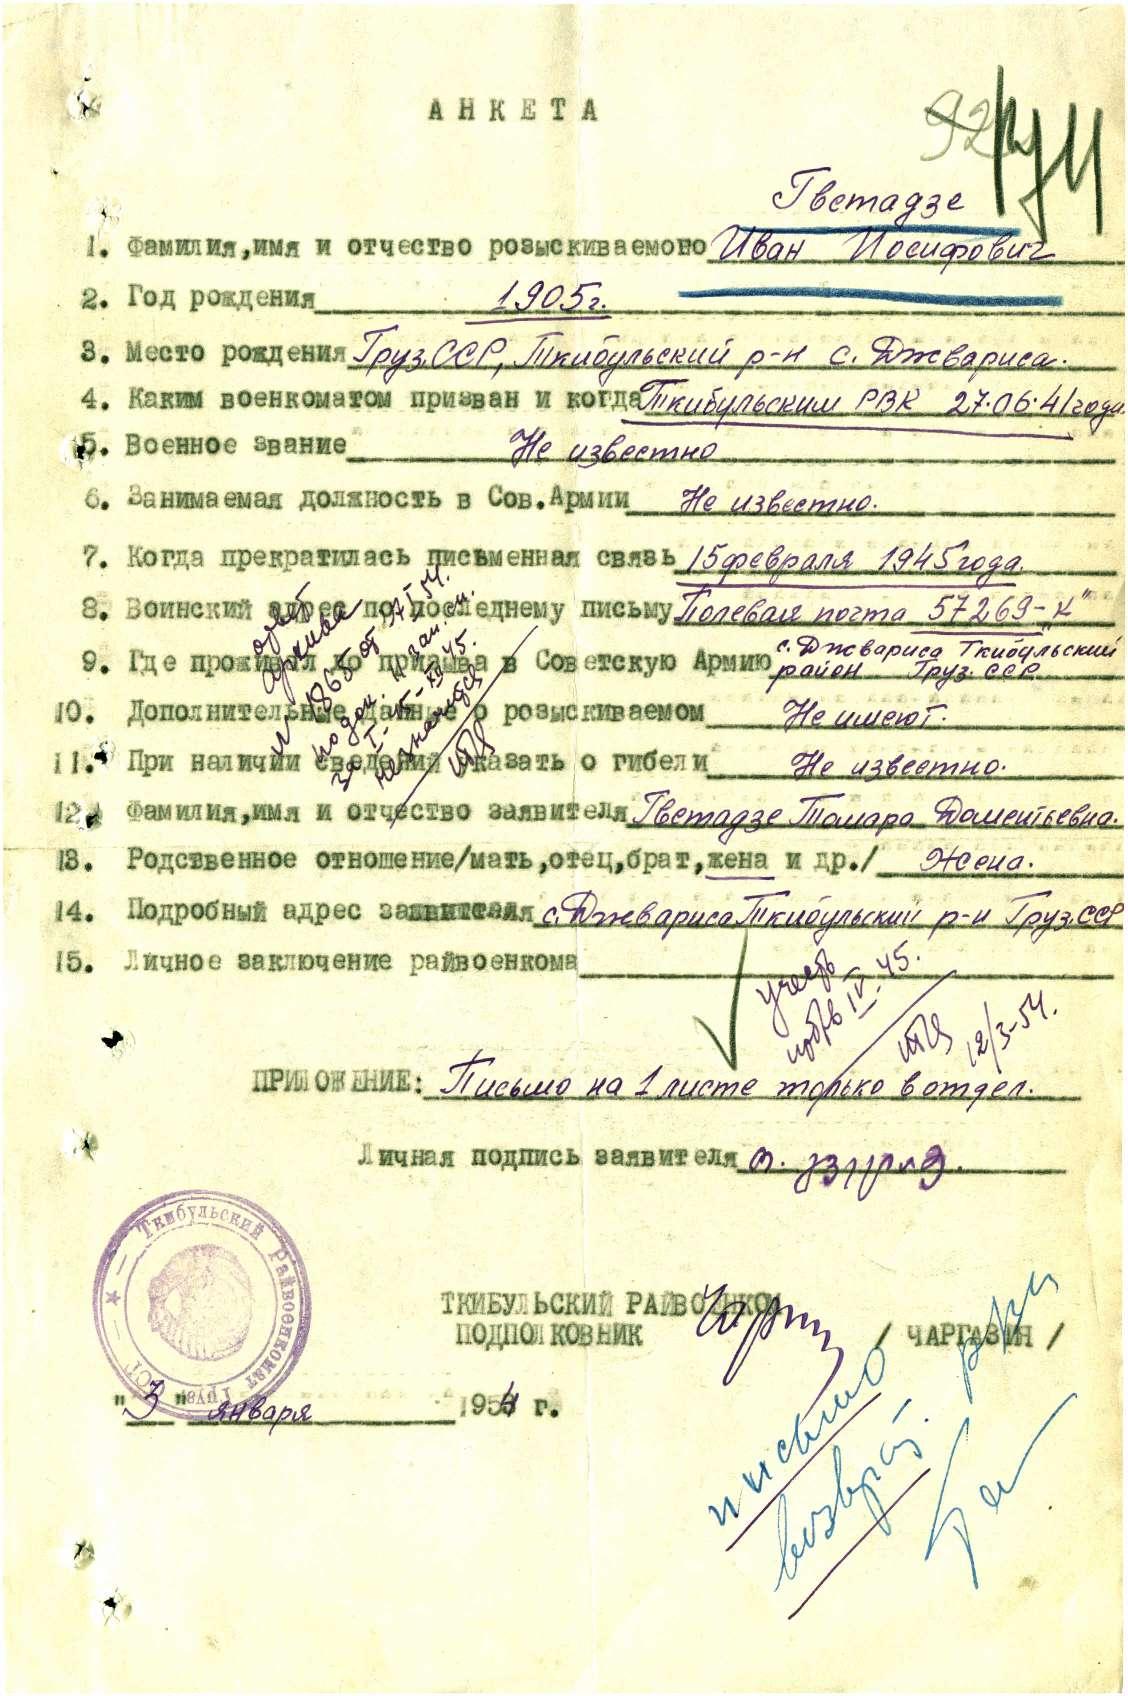 АНКЕТА
Гветадзе
1. Фамилия,имя и отчество розыскиваемого Иван Иосифович
2. Год рождения 1905г.
3. Место рождения Груз.ССР, Ткибульский р-н с. Джвариса.
4. Каким военкоматом призван и когда Ткибульским РВК 27.06.41 года.
5. Военное звание Не известно
6. Занимаемая должность в Сов.Армии Не известно.
7. Когда прекратилась письменная связь 15 февраля 1945 года.
8. Воинский адрес по последнему письму Полевая почта 57269-"К"
9. Где проживал до призыва в Советскую Армию с. Джвариса Ткибульский
район Груз. ССР
10. Дополнительные данные о розыскиваемом Не имеют.
11. При наличии сведений указать о гибели Не известно.
12. Фамилия,имя и отчество заявителя Гветадзе Тамара Даментьевна.
13. Родственное отношение/мать,отец,брат,жена и др./ Жена.
14. Подробный адрес заявителя с. Джвариса Ткибульский р-н Груз.ССР
15. Личное заключение райвоенкома
учесть
IV.45.
12/3-54.
ПРИЛОЖЕНИЕ: Письмо на 1 листе только в отдел.
Личная подпись заявителя
Ткибульский райвоенкомат Груз. ССР
ТКИБУЛЬСКИЙ РАЙВОЕНКОМ
ПОДПОЛКОВНИК / ЧАРГАЗИЯ /
"3" января 1954 г.
письмо
возврат.